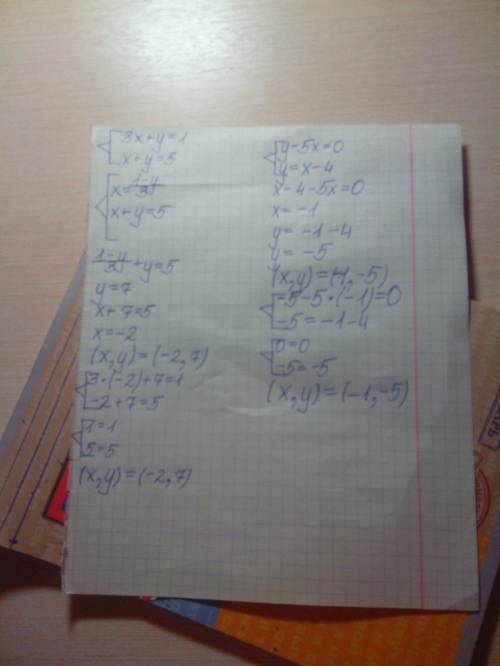 3x+y=1
x+y=5
x=(1-y)/3
x+y=5
(1-y)/3+y=5
y=7
x+7=5
x=-2
(x,y)=(-2,7)
3·(-2)+7=1
-2+7=5
1=1
5=5
(x,y)=(-2,7)
y-5x=0
y=x-4
x-4-5x=0
x=-1
y=-1-4
y=-5
(x,y)=(-1,-5)
-5-5·(-1)=0
-5=-1-4
0=0
-5=-5
(x,y)=(-1,-5)